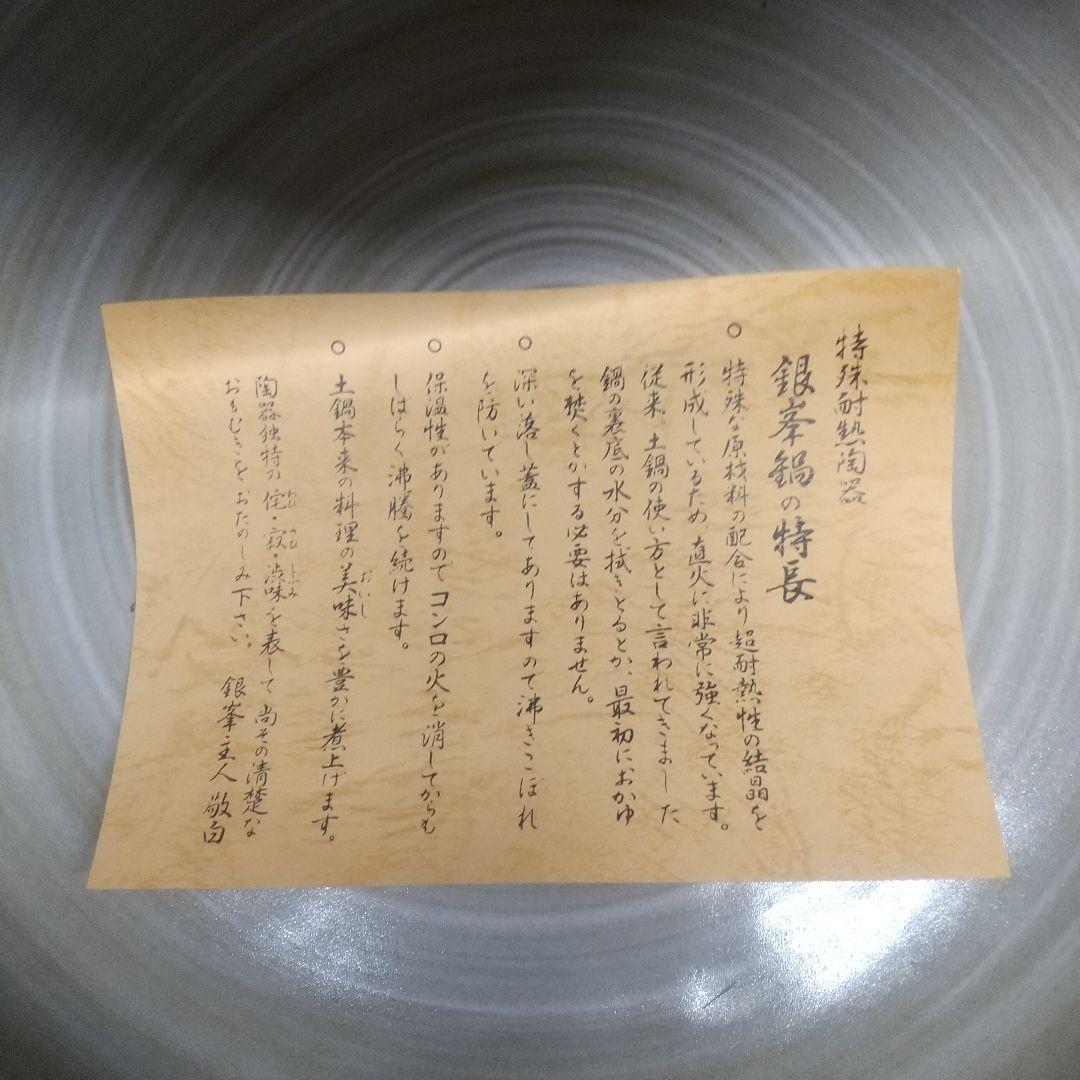 特殊耐熱陶器
銀峯鍋の特長
○ 特殊な原材料の配合により超耐熱性の結晶を
形成しているため、直火に非常に強くなっています。
従来、土鍋の使い方として言われてきました
鍋の裏底の水分を拭きとるとか、最初におかゆ
を焚くとかする必要はありません。
○ 深い落し蓋にしてありますので沸きこぼれ
を防いでいます。
○ 保温性がありますのでコンロの火を消してからも
しばらく沸騰を続けます。
○ 土鍋本来の料理の美味さを豊かに煮上げます。
おいし
陶器独特の侘・寂・渋味を表して尚その清楚な
わび さび しぶみ
おもむきをおたのしみ下さい。 銀峯主人 敬白